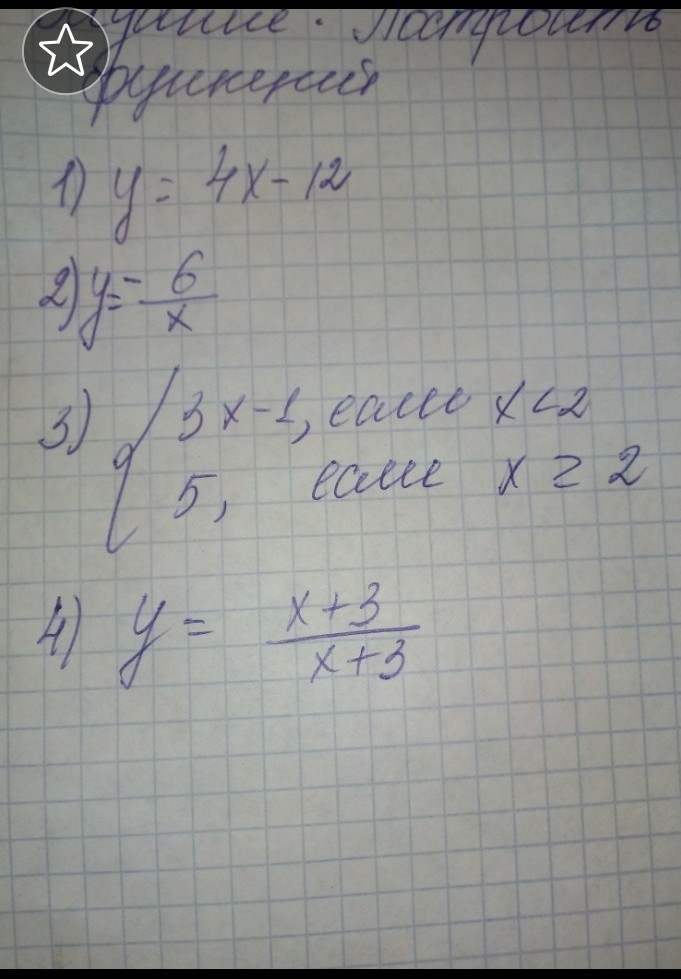 Построить
функций
1) y = 4x - 12
2) y = - 6/x
3) { 3x - 1, если x < 2
5, если x ≥ 2
4) y = x+3/x+3